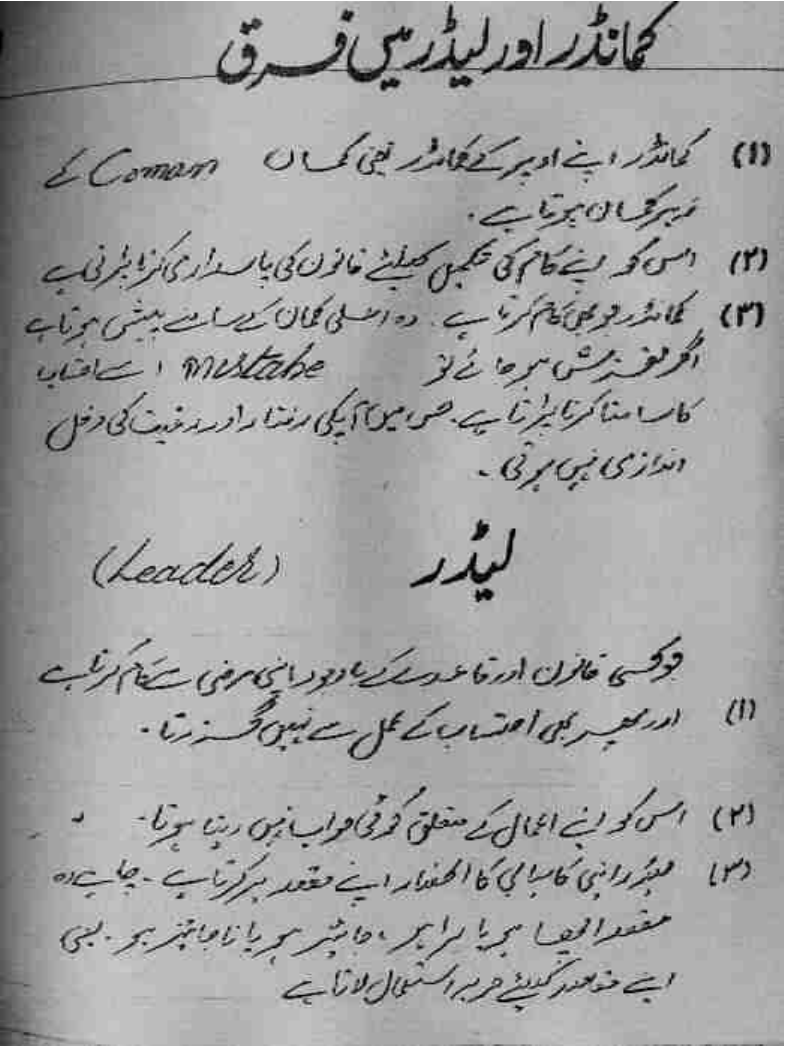 کمانڈر اور لیڈر میں فرق
(۱) کمانڈر اپنے اوپر کے کمانڈر یعنی کمان Comam کے
زیر کمان ہوتا ہے۔
(۲) اس کو اپنے کام کی تکمیل کیلئے قانون کی پاسداری کرنا پڑتی ہے
(۳) کمانڈر جو بھی کام کرتا ہے۔ وہ اعلیٰ کمان کے سامنے پیش ہوتا ہے
اگر لغزش ہو جائے تو Mistake اسے احتساب
کا سامنا کرنا پڑتا ہے۔ جس میں آپکی رفتار اور کی دخل
اندازی نہیں ہوتی۔
لیڈر (Leader)
جو کسی قانون اور قاعدے کے باوجود اپنی مرضی سے کام کرتا ہے
(۱) اور پھر بھی احتساب کے عمل سے نہیں گزرتا۔
(۲) اس کو اپنے اعمال کے متعلق کوئی جواب نہیں دینا ہوتا۔
(۳) لیڈر اپنی کامیابی کا انحصار اپنے مقصد پر کرتا ہے۔ چاہے وہ
مقصد اچھا ہو یا برا ہو، جائز ہو یا ناجائز ہو۔ یعنی
اپنے مقاصد کیلئے حربہ استعمال لاتا ہے